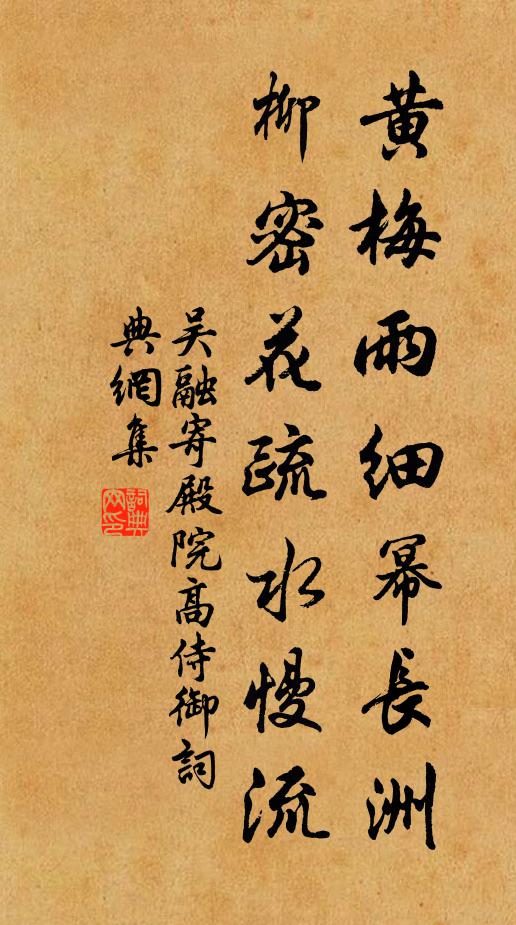 黄梅雨細幂長洲
柳密花疏水慢流
吴融寄殿院高侍御詞
典網集
詞典網印